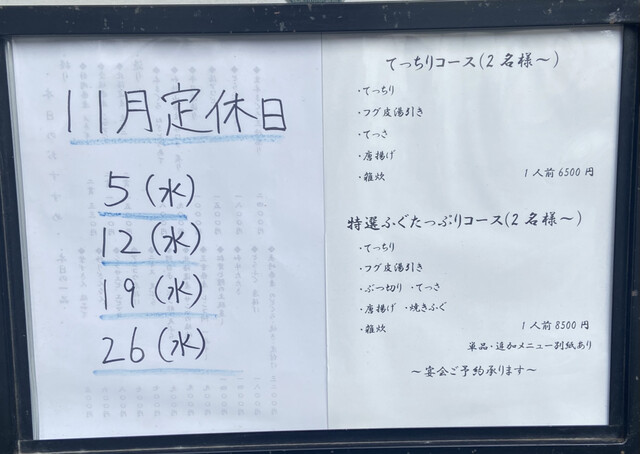 11月定休日
5(水)
12(水)
19(水)
26(水)
てっちりコース(2名様～)
・てっちり
・フグ皮湯引き
・てっさ
・唐揚げ
・雑炊
1人前6500円
特選ふぐたっぷりコース(2名様～)
・てっちり
・フグ皮湯引き
・ぶつ切り ・てっさ
・唐揚げ ・焼きふぐ
・雑炊
1人前8500円
単品・追加メニュー別紙あり
～宴会ご予約承ります～